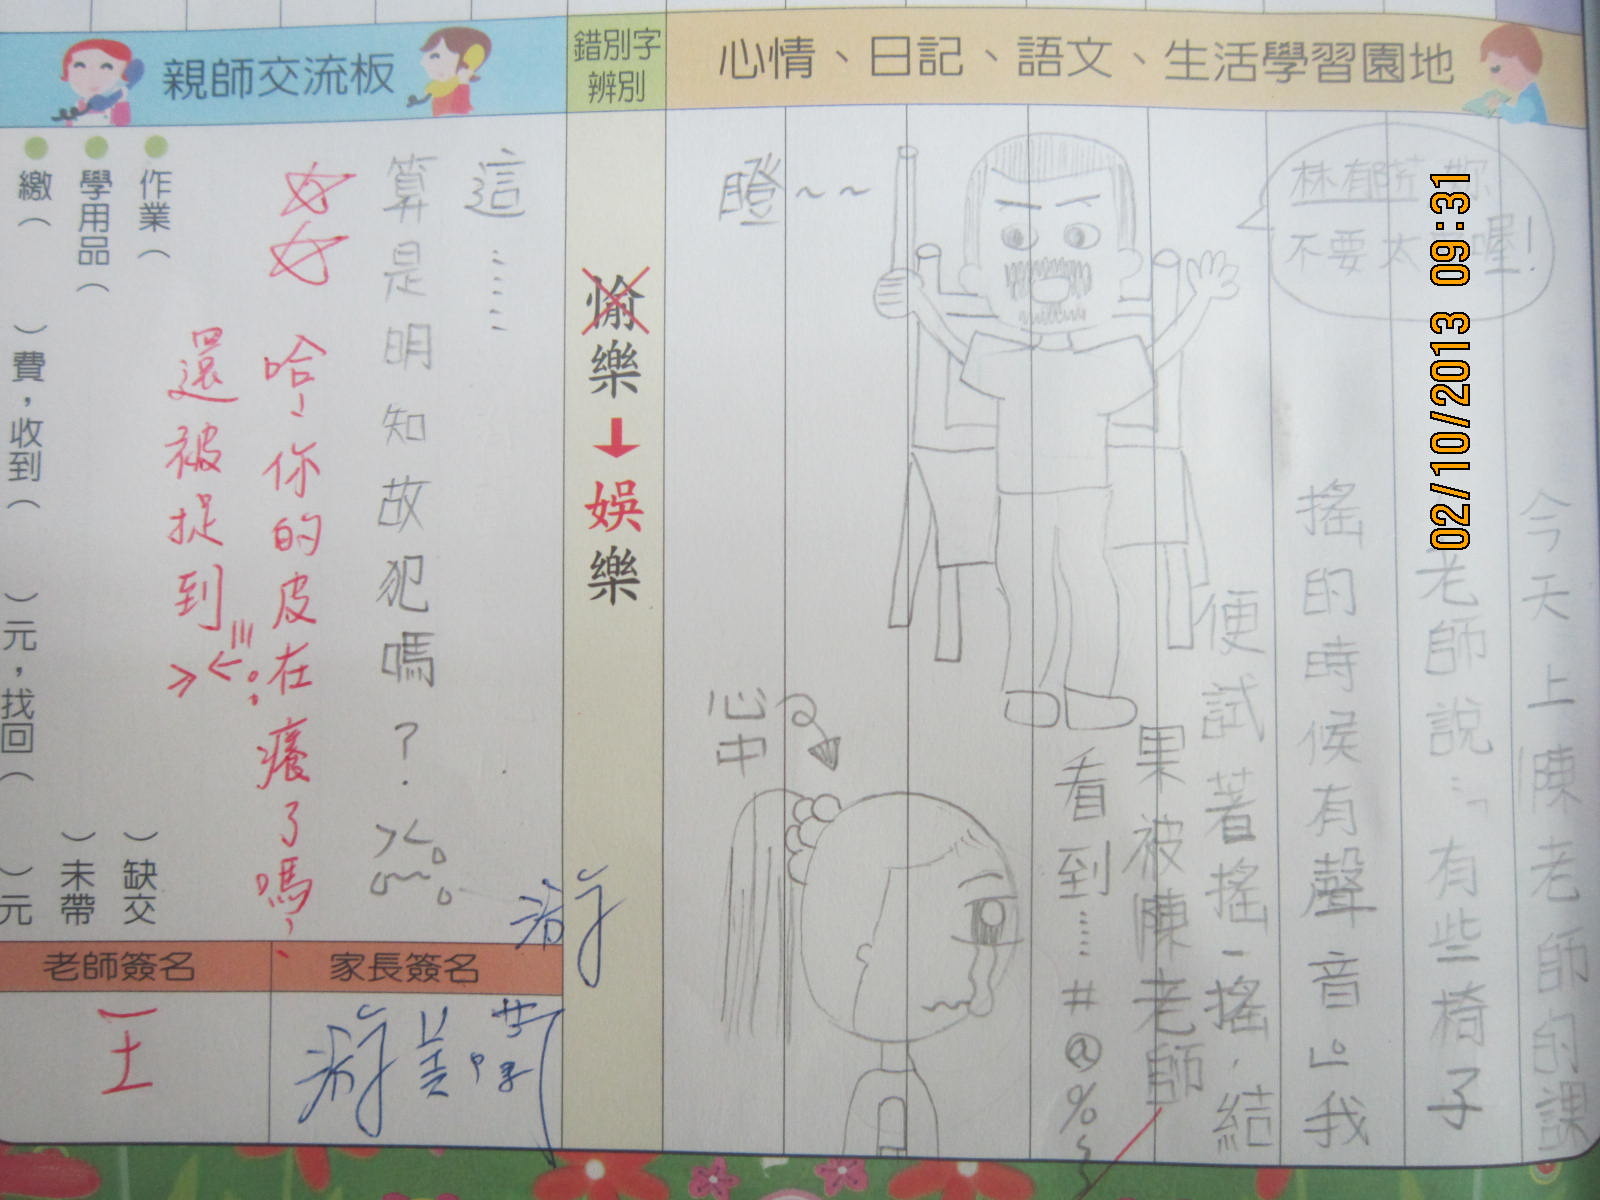 親師交流板
錯別字
辨別
心情、日記、語文、生活學習園地
今天上陳老師的課
老師說:「有些椅子
搖的時候有聲音」。我
便試著搖一搖,結
果被陳老師
看到……#@%
林有 你
不要太 喔!
瞪~~
心中
愉樂
娛樂
這……
算是明知故犯嗎?
哈!你的皮在癢了嗎?
還被捉到
作業( )缺交
學用品( )未帶
繳( )費,收到( )元,找回( )元
老師簽名
家長簽名
王
游
游美
02/10/2013 09:31